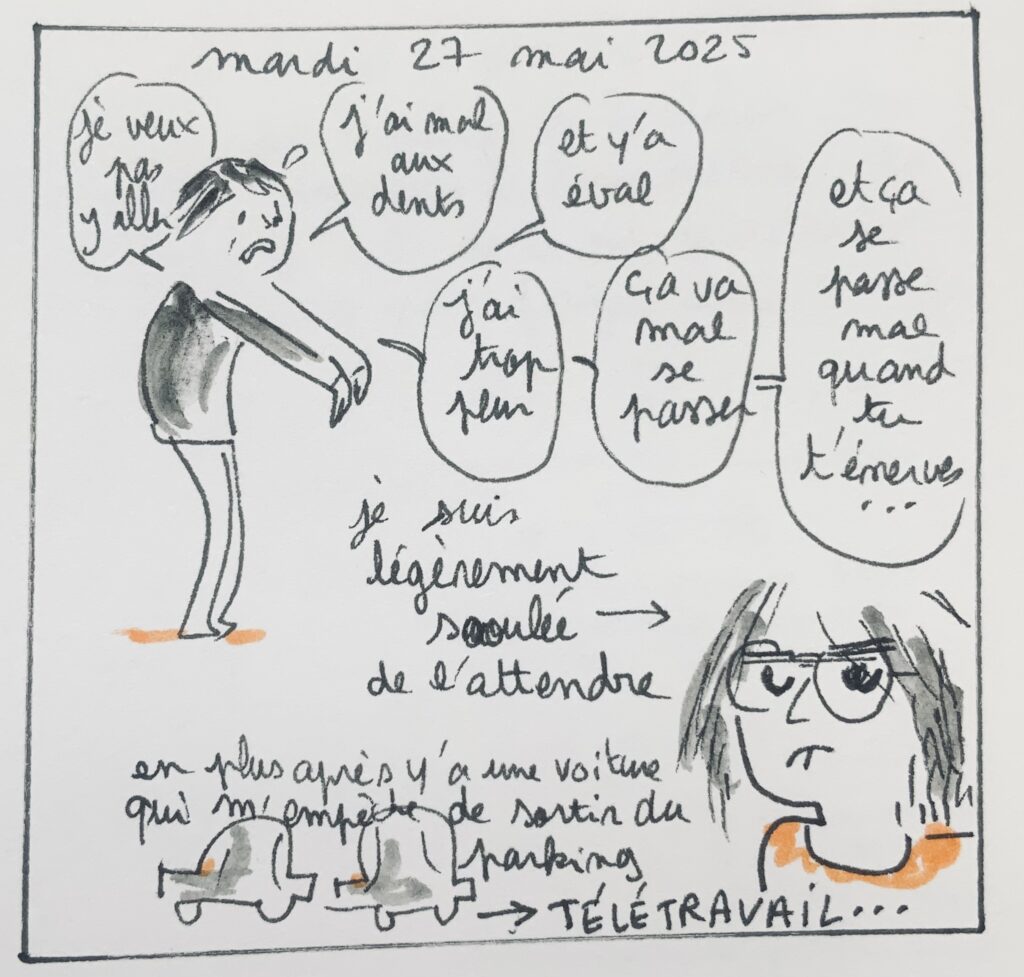 mardi 27 mai 2025
je veux
pas
y aller
j'ai mal
aux
dents
et y'a
éval
j'ai
trop
peur
ça va
mal
se
passer
et ça
se
passe
mal
quand
tu
t'énerves
...
je suis
légèrement
saoulée →
de l'attendre
en plus après y'a une voiture
qui m'empêche de sortir du
parking
→ TÉLÉTRAVAIL...